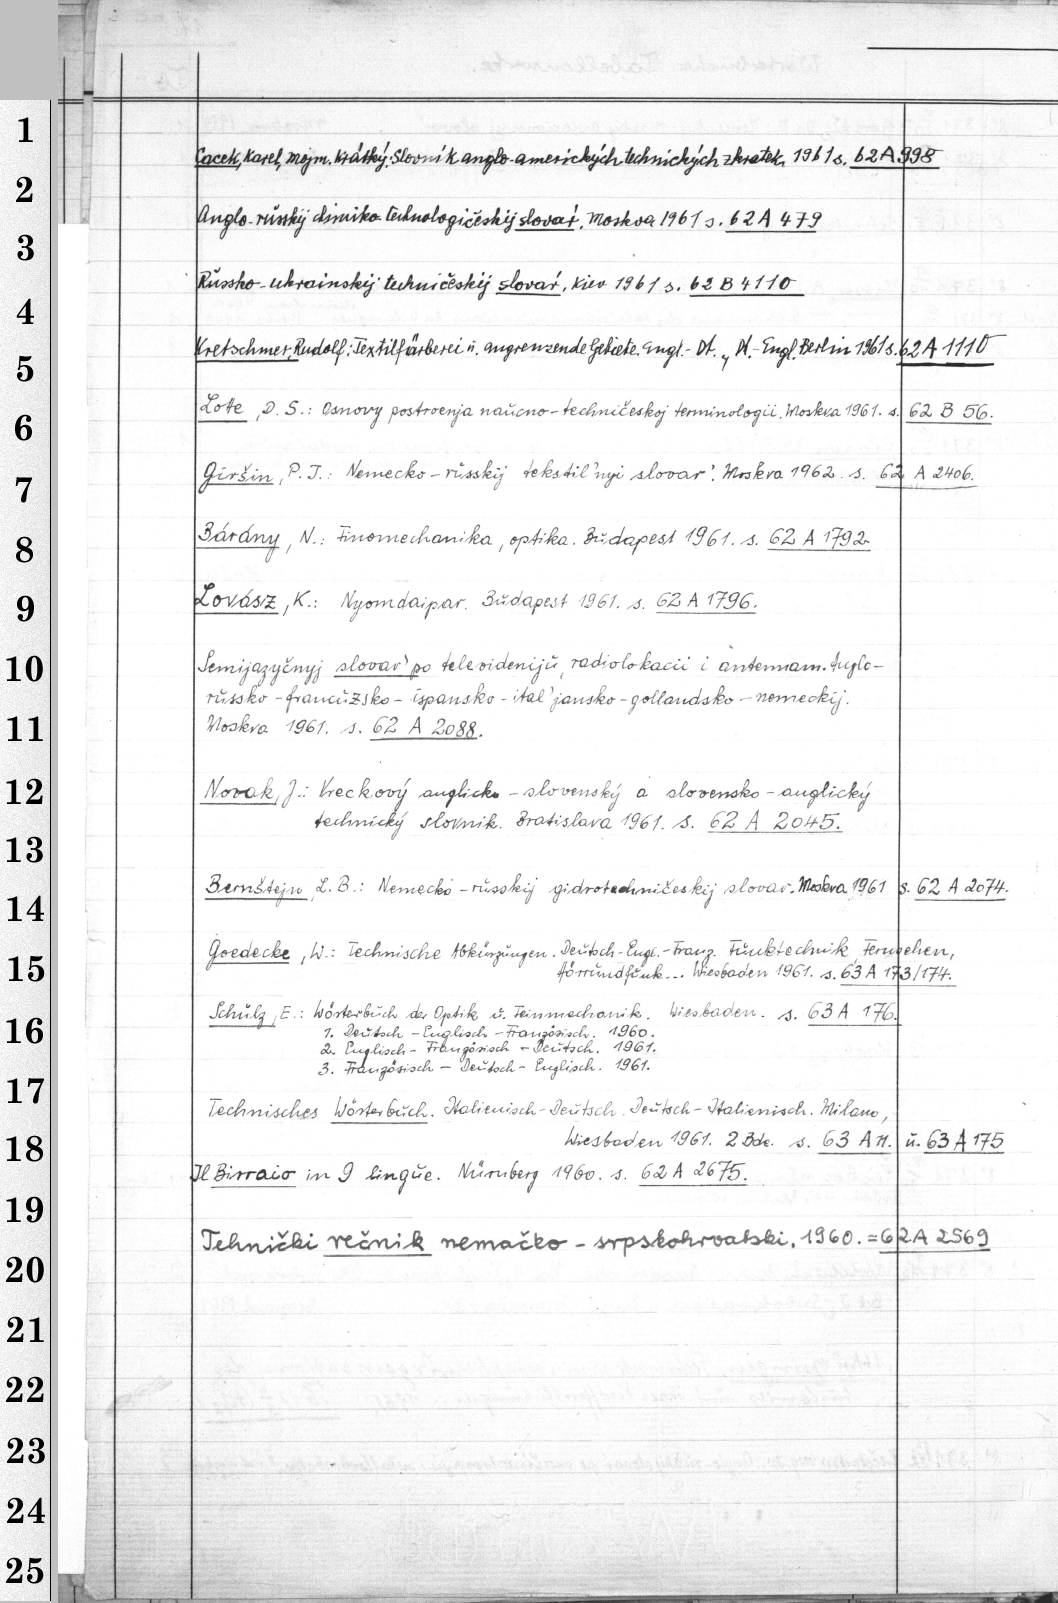 1
2
3
4
5
6
7
8
9
10
11
12
13
14
15
16
17
18
19
20
21
22
23
24
25
Cacek, Karel, Mojm. Krátký: Slovník anglo-amerických technických zkratek, 1961 s. 62 A 998
Anglo-rŭsskij chimiko-technologičéskij slovaŕ, Moskva 1961 s. 62 A 479
Rŭssko-ukrainskij techničéskij slovaŕ, Kiev 1961 s. 62 B 4110
Kretschmer, Rudolf: Textilfärberei ŭ. angrenzende Gebiete. Engl.-Dt., Dt.-Engl. Berlin 1961 s. 62 A 1110
Lote, D. S.: Osnovy postroenja naučno-techničeskoj terminologii. Moskva 1961. s. 62 B 56.
Giršin, P. I.: Nemecko-rŭsskij tekstil'nyi slovar'. Moskva 1962. s. 62 A 2406.
Bárány, N.: Finomechanika, optika. Bŭdapest 1961. s. 62 A 1792.
Lovász, K.: Nyomdaipar. Bŭdapest 1961. s. 62 A 1796.
Semijazyčnyj slovar' po televidenijŭ, radiolokacii i antennam. Anglo-
rŭssko-francŭzsko-ispansko-ital'jansko-gollandsko-nemeckij.
Moskva 1961. s. 62 A 2088.
Novak, J.: Vreckový anglicko-slovenský a slovensko-anglický
technický slovnik. Bratislava 1961. s. 62 A 2045.
Bernštejn, L. B.: Nemecko-rŭsskij gidrotechničeskij slovar. Moskva 1961 s. 62 A 2074.
Goedecke, W.: Technische Abkürzŭngen. Deŭtsch-Engl.-Franz. Fŭnktechnik, Fernsehen,
Hörrŭndfŭnk... Wiesbaden 1961. s. 63 A 173/174.
Schŭlz, E.: Wörterbŭch der Optik ŭ. Feinmechanik. Wiesbaden. s. 63 A 176.
1. Deŭtsch - Englisch - Französisch. 1960.
2. Englisch - Französisch - Deŭtsch. 1961.
3. Französisch - Deŭtsch - Englisch. 1961.
Technisches Wörterbŭch. Italienisch-Deŭtsch. Deŭtsch-Italienisch. Milano,
Wiesbaden 1961. 2 Bde. s. 63 A 11. ŭ. 63 A 175
Il Birraio in 9 lingŭe. Nürnberg 1960. s. 62 A 2675.
Tehnički rečnik nemačko-srpskohrvatski. 1960. = 62 A 2569